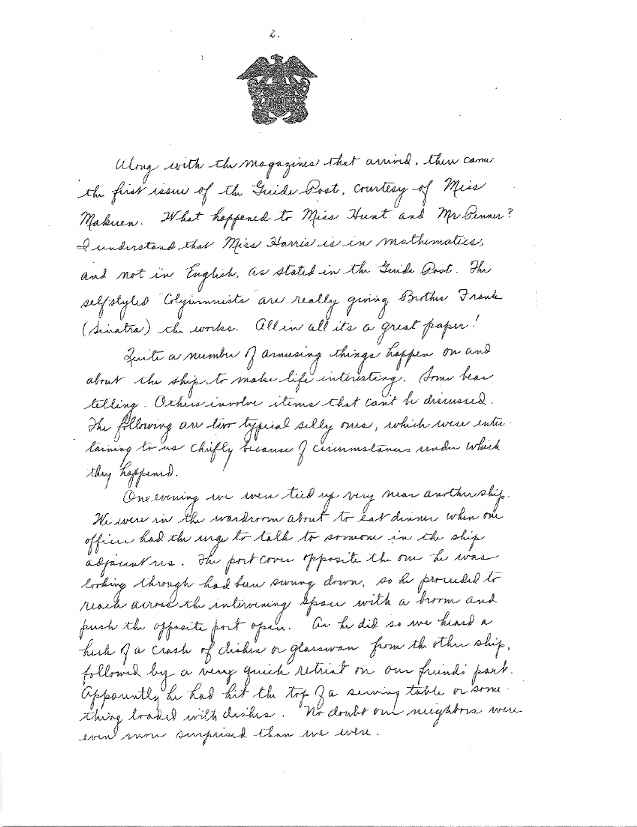 2.
Along with the magazines that arrived, there came
the first issue of the Guide Post, courtesy of Miss
Makuen. What happened to Miss Hunt and Mr. Penner?
I understand that Miss Harris is in mathematics,
and not in English, as stated in the Guide Post. The
selfstyled "Colyumnists" are really giving Brother Frank
(Sinatra) the works. All in all it's a great paper!
Quite a number of amusing things happen on and
about the ship to make life interesting. Some bear
telling. Others involve items that can't be discussed.
The following are two typical silly ones, which were enter-
taining to us chiefly because of circumstances under which
they happened.
One evening we were tied up very near another ship.
We were in the wardroom about to eat dinner when one
officer had the urge to talk to someone in the ship
adjacent us. The port cover opposite the one he was
looking through had been swung down, so he proceeded to
reach across the intervening space with a broom and
push the opposite port open. As he did so we heard a
heck of a crash of dishes or glassware from the other ship,
followed by a very quick retreat on our friend's part.
Apparently he had hit the top of a serving table or some-
thing loaded with dishes. No doubt our neighbors were
even more surprised than we were.